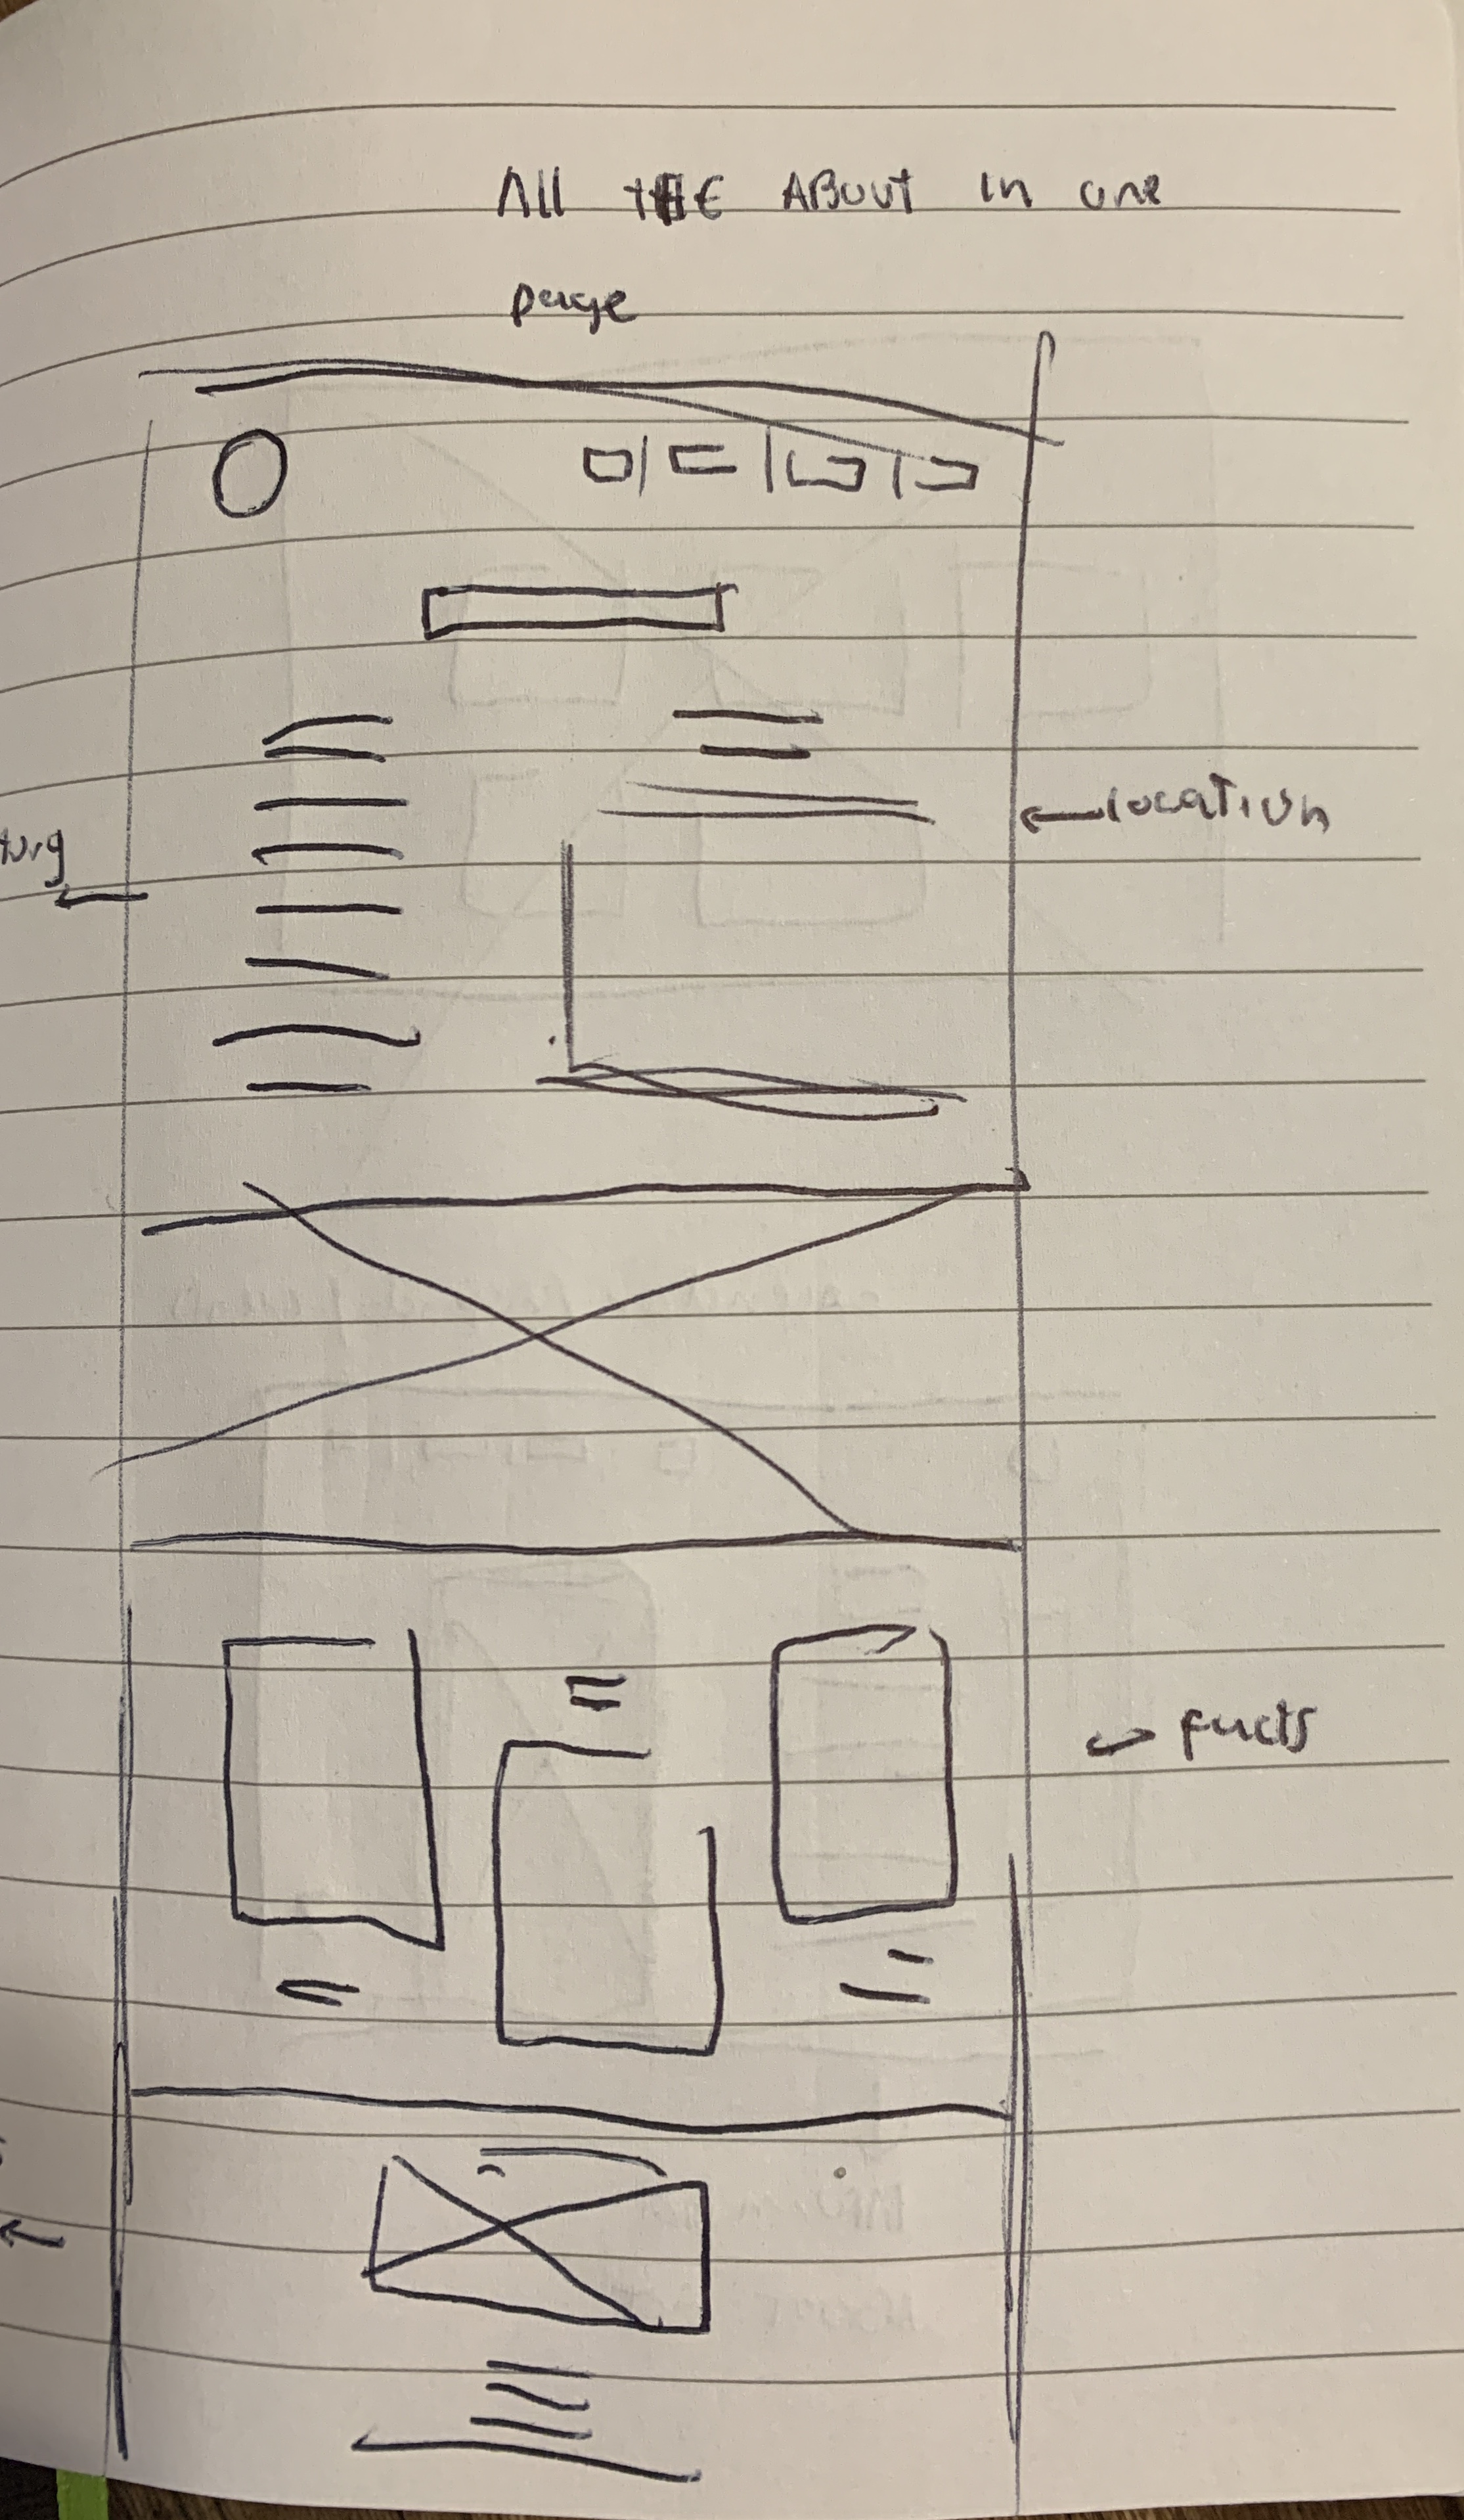 All THE ABOUT in one
page
location
facts